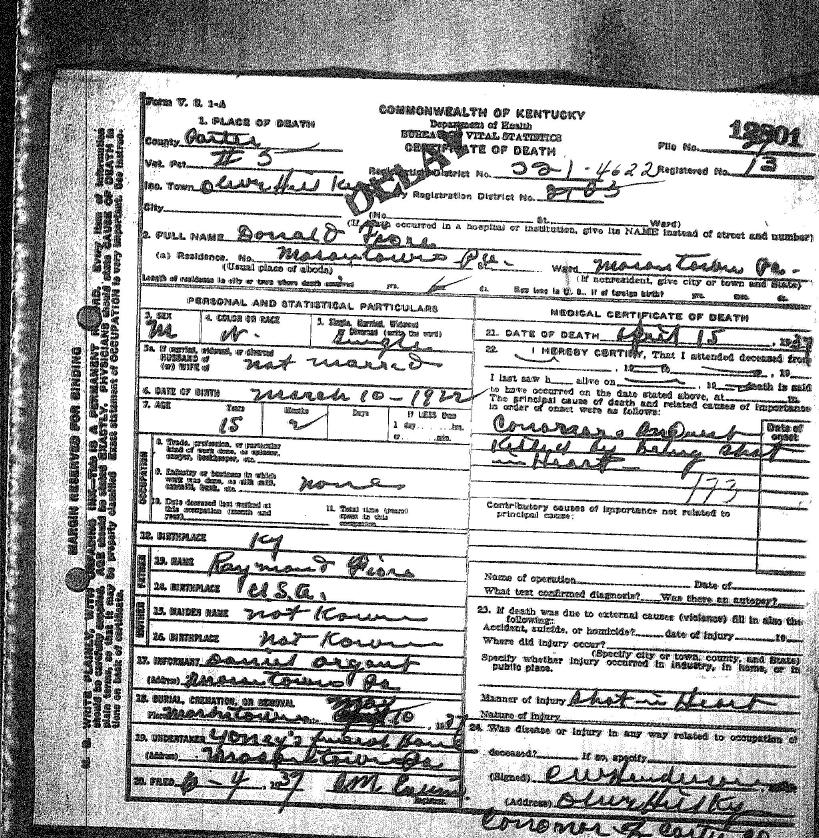 Form V. S. 1-A
COMMONWEALTH OF KENTUCKY
Department of Health
BUREAU OF VITAL STATISTICS
CERTIFICATE OF DEATH
DELAY
12801
File No.
1. PLACE OF DEATH
County Carter
Vot. Pct. # 5
Registration District No. 221-4622 Registered No. 13
Inc. Town Olive Hill Ky
Primary Registration District No.
City
(No. St. Ward)
(If death occurred in a hospital or institution, give its NAME instead of street and number)
2. FULL NAME Donald
(a) Residence. No. Masontown Pa. St. Ward Masontown Pa.
(Usual place of abode) (If nonresident, give city or town and State)
Length of residence in city or town where death occurred yrs. ds. How long in U. S., if of foreign birth? yrs. mos. ds.
PERSONAL AND STATISTICAL PARTICULARS
3. SEX M
4. COLOR OR RACE W.
5. Single, Married, Widowed or Divorced (write the word) Single
5a. If married, widowed, or divorced HUSBAND of (or) WIFE of not married
6. DATE OF BIRTH March 10-1922
7. AGE Years 15 Months 2 Days If LESS than 1 day hrs. or min.
OCCUPATION
8. Trade, profession, or particular kind of work done, as spinner, sawyer, bookkeeper, etc.
9. Industry or business in which work was done, as silk mill, sawmill, bank, etc. none
10. Date deceased last worked at this occupation (month and year)
11. Total time (years) spent in this occupation
12. BIRTHPLACE Ky
FATHER
13. NAME Raymond
14. BIRTHPLACE U.S.A.
MOTHER
15. MAIDEN NAME not Kown
16. BIRTHPLACE Not Kown
17. INFORMANT Daniel
(Address) Masontown Pa
18. BURIAL, CREMATION, OR REMOVAL
Place Masontown Date May 10, 1937
19. UNDERTAKER Funeral Home
(Address) Masontown Pa
20. FILED 6-4, 1937
Registrar.
MEDICAL CERTIFICATE OF DEATH
21. DATE OF DEATH April 15, 1937
22. I HEREBY CERTIFY, That I attended deceased from
, 19 to , 19
I last saw h alive on , 19 death is said
to have occurred on the date stated above, at m.
The principal cause of death and related causes of importance
in order of onset were as follows:
Date of onset
Conorors Enquest
Killed by being shot
in Heart
173
Contributory causes of importance not related to
principal cause:
Name of operation Date of
What test confirmed diagnosis? Was there an autopsy?
23. If death was due to external causes (violence) fill in also the
following:
Accident, suicide, or homicide? date of injury , 19
Where did injury occur?
(Specify city or town, county, and State)
Specify whether injury occurred in industry, in home, or in
public place.
Manner of injury Shot in Heart
Nature of injury
24. Was disease or injury in any way related to occupation of
deceased? If so, specify
(Signed) Henderson
(Address) Olive Hill Ky
Corroner of Carter
MARGIN RESERVED FOR BINDING